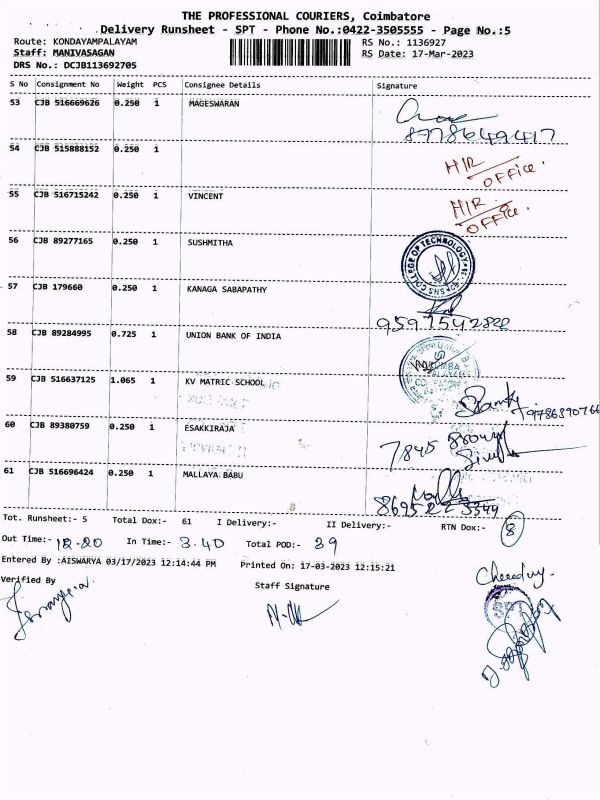 THE PROFESSIONAL COURIERS, Coimbatore
Delivery Runsheet - SPT - Phone No.:0422-3505555 - Page No.:5
Route: KONDAYAMPALAYAM RS No.: 1136927
Staff: MANIVASAGAN RS Date: 17-Mar-2023
DRS No.: DCJB113692705
S No Consignment No Weight PCS Consignee Details Signature
53 CJB 516669626 0.250 1 MAGESWARAN
8778649417
54 CJB 515888152 0.250 1 H/R OFFice.
55 CJB 516715242 0.250 1 VINCENT H/R OFFice.
56 CJB 89277165 0.250 1 SUSHMITHA
COLLEGE OF TECHNOLOGY
57 CJB 179660 0.250 1 KANAGA SABAPATHY
9597542822
58 CJB 89284995 0.725 1 UNION BANK OF INDIA
59 CJB 516637125 1.065 1 KV MATRIC SCHOOL
60 CJB 89380759 0.250 1 ESAKKIRAJA
61 CJB 516696424 0.250 1 MALLAYA BABU
Tot. Runsheet:- 5 Total Dox:- 61 I Delivery:- II Delivery:- RTN Dox:- 8
Out Time:- 12.20 In Time:- 3.40 Total POD:- 39
Entered By :AISWARYA 03/17/2023 12:14:44 PM Printed On: 17-03-2023 12:15:21
Verified By Staff Signature
SPT